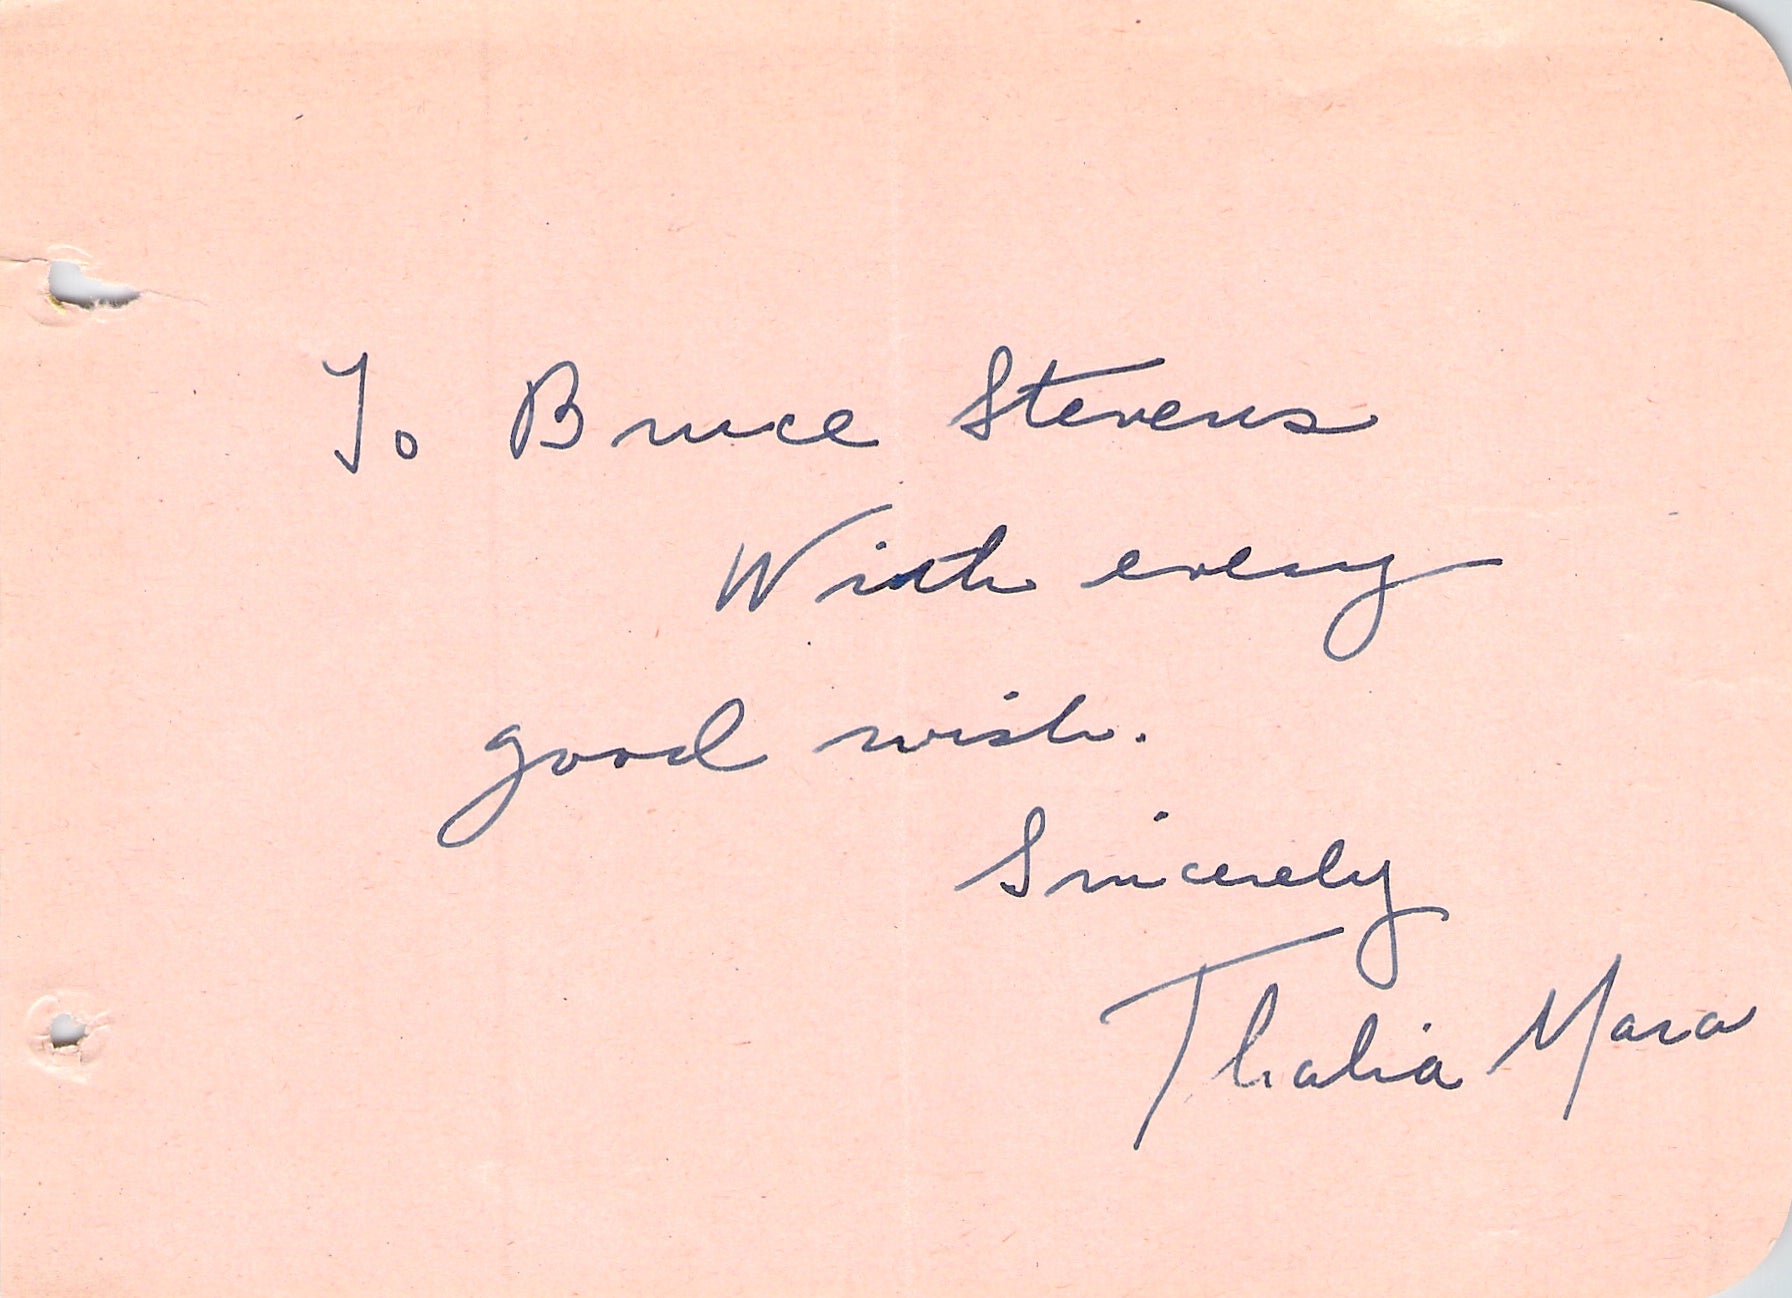 To Bruce Stevens
With every
good wish.
Sincerely
Thalia Mara